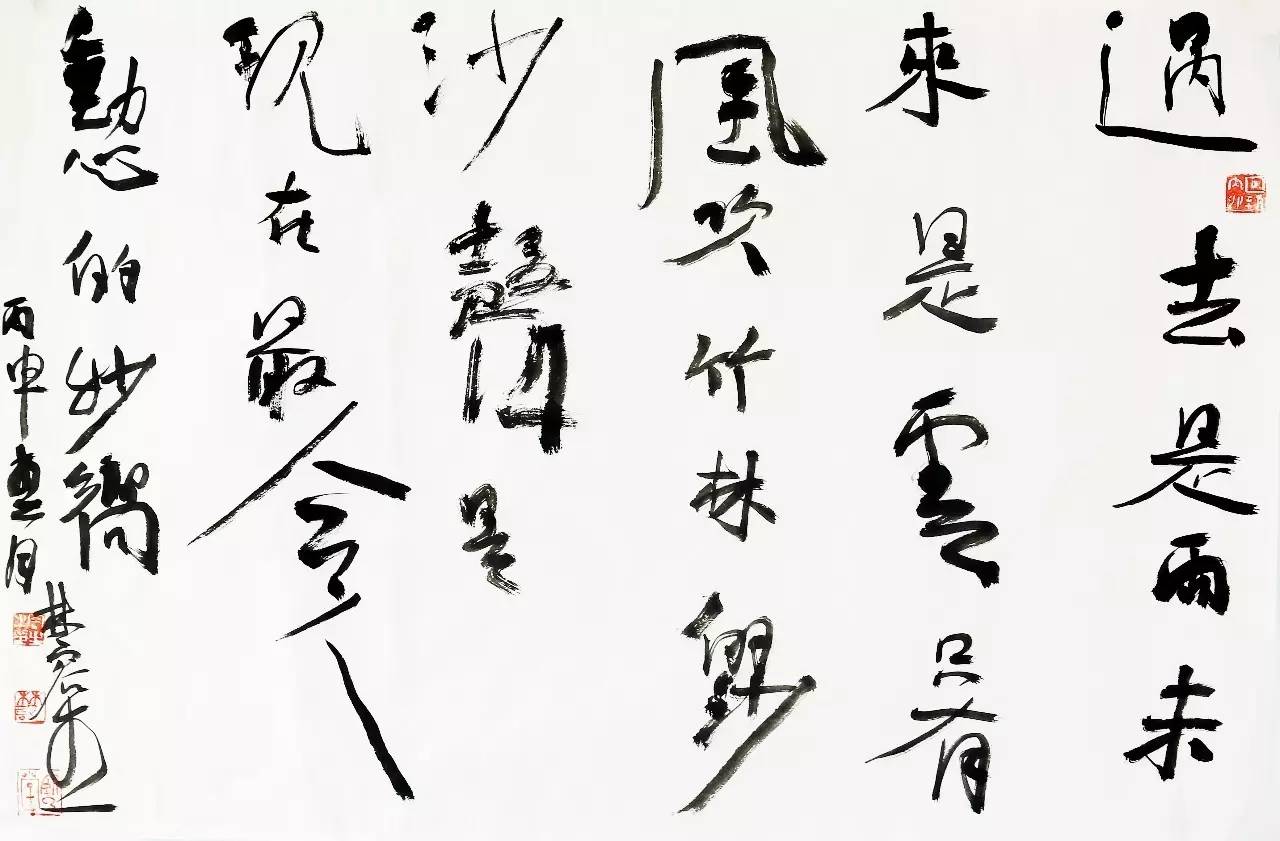 過去是雨未
來是雲只有
風吹竹林
沙聲是
現在最令人
動心的妙嚮
丙申 月
林容生